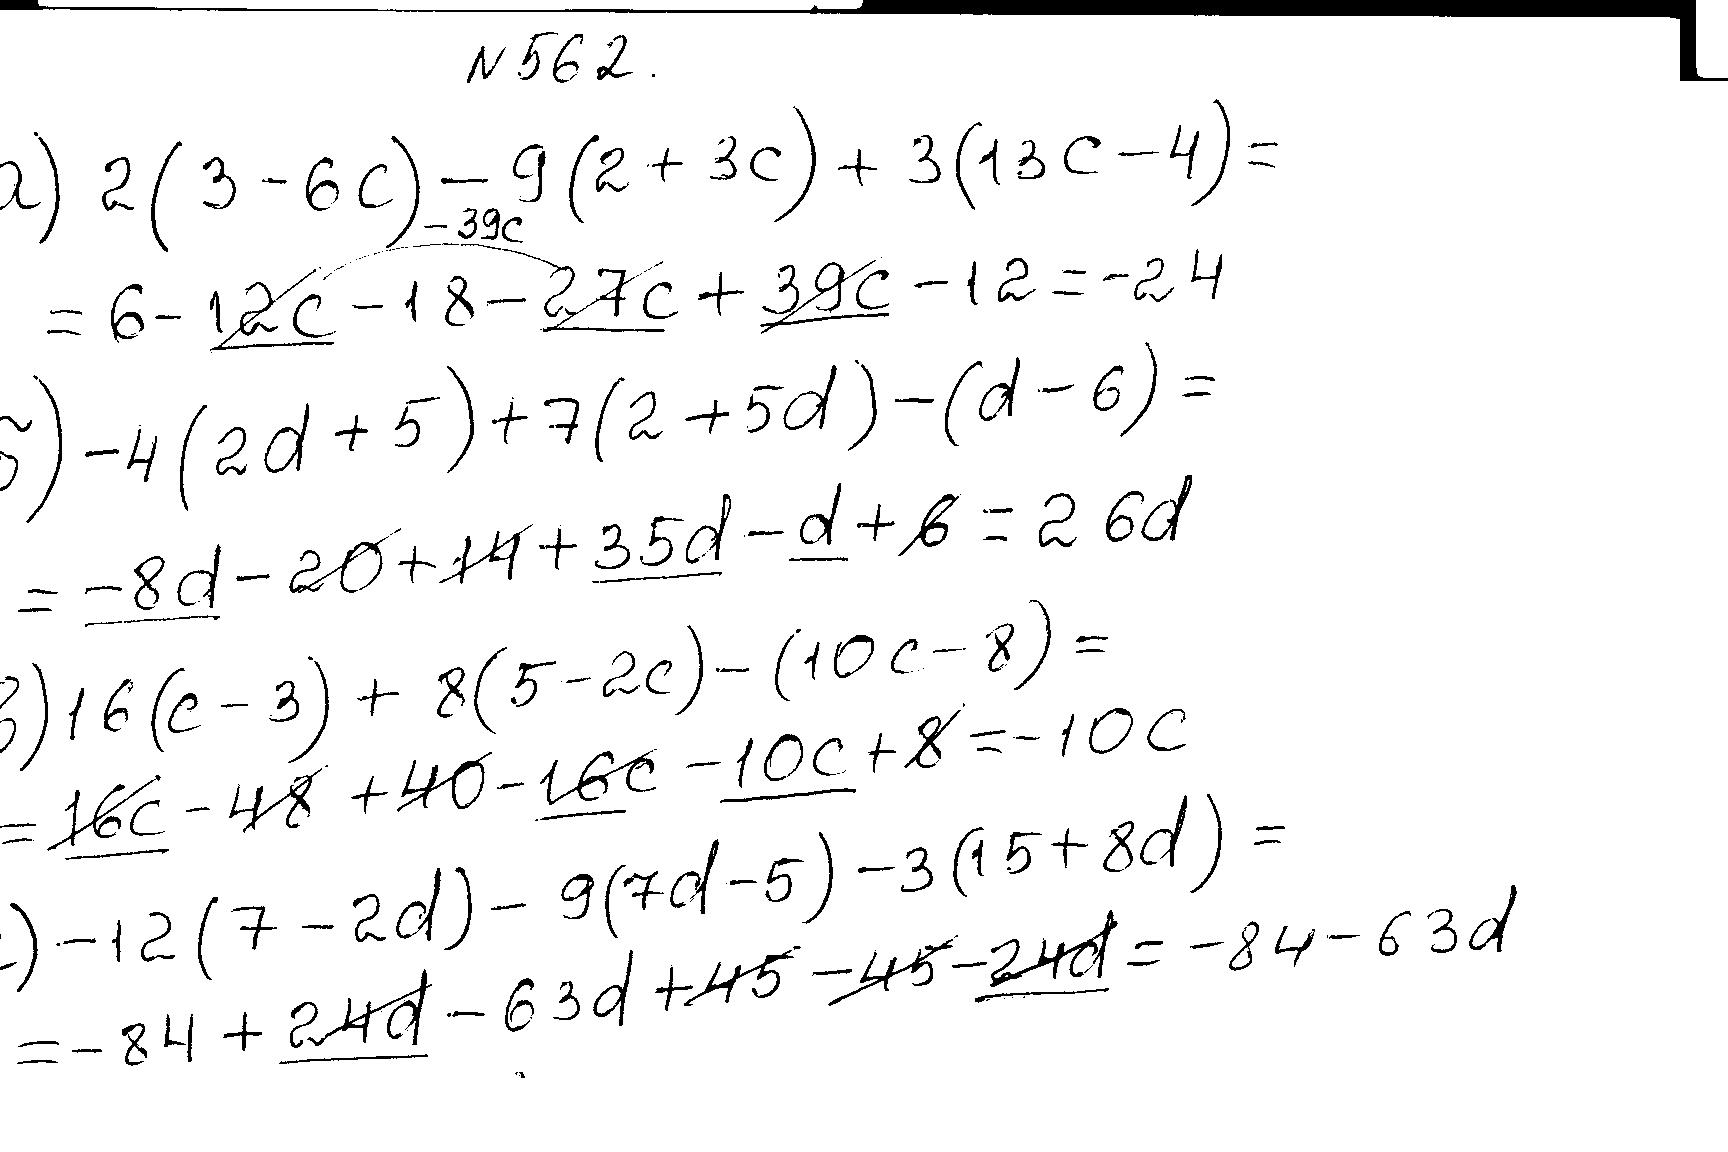 N 562.
а) 2(3-6c)-9(2+3c)+3(13c-4)=
-39c
=6-12c-18-27c+39c-12=-24
б) -4(2d+5)+7(2+5d)-(d-6)=
=-8d-20+14+35d-d+6=26d
в) 16(c-3)+8(5-2c)-(10c-8)=
=16c-48+40-16c-10c+8=-10c
) -12(7-2d)-9(7d-5)-3(15+8d)=
=-84+24d-63d+45-45-24d=-84-63d